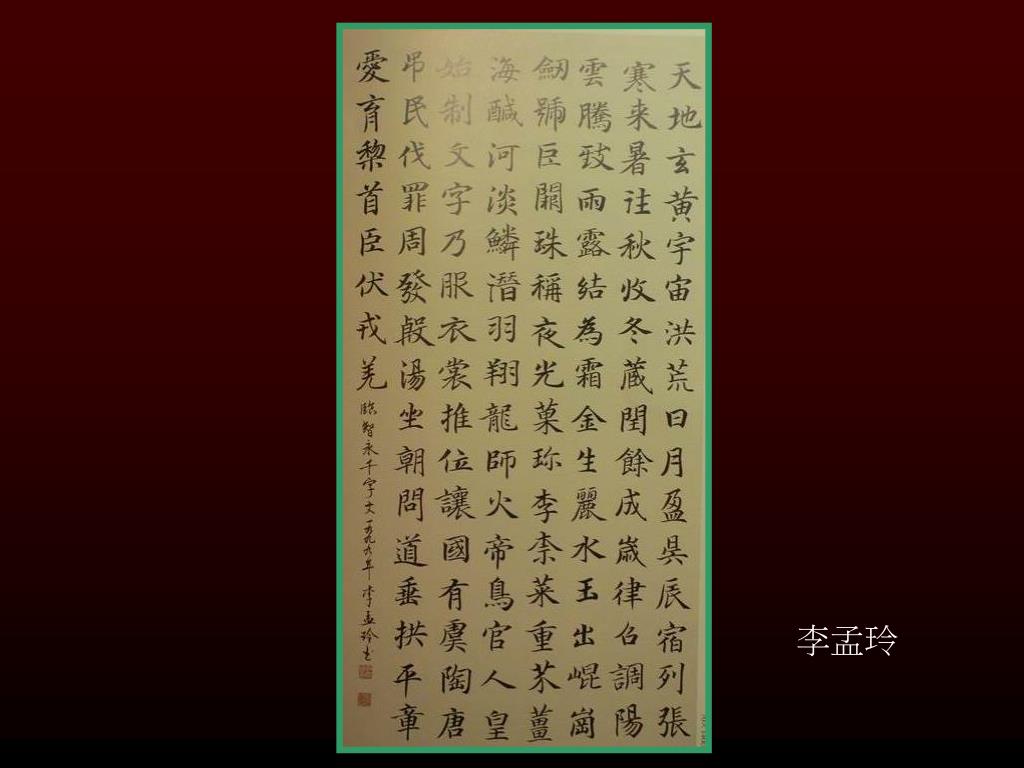 天地玄黄宇宙洪荒日月盈昃辰宿列張
寒来暑往秋收冬蔵閏餘成歲律召調陽
雲騰致雨露結為霜金生麗水玉出崐崗
劒號巨闕珠稱夜光菓珎李柰菜重芥薑
海醎河淡鱗潛羽翔龍師火帝鳥官人皇
始制文字乃服衣裳推位讓國有虞陶唐
吊民伐罪周發殷湯坐朝問道垂拱平章
愛育黎首臣伏戎羌
臨智永千字文一九九六年李孟玲书
李孟玲